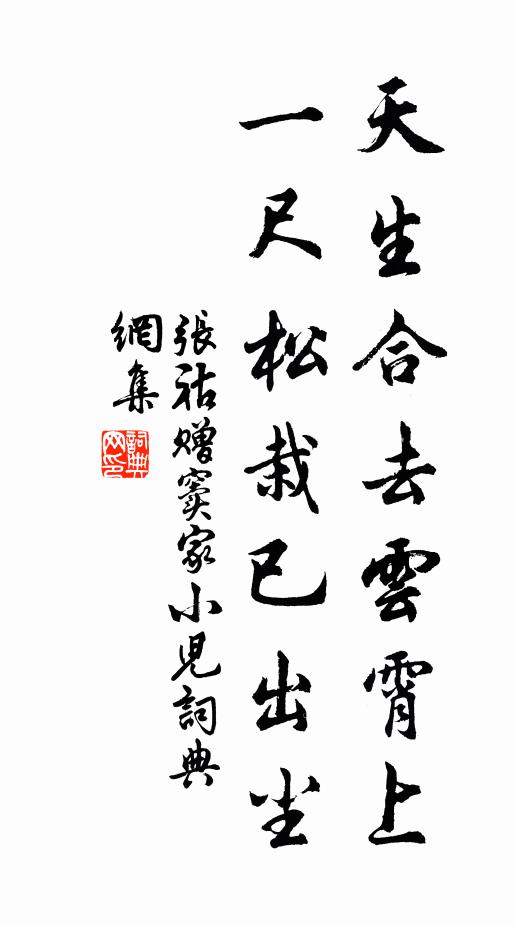 天生合去雲霄上
一尺松栽已出尘
張祜贈竇家小児詞典
網集
詞典網印